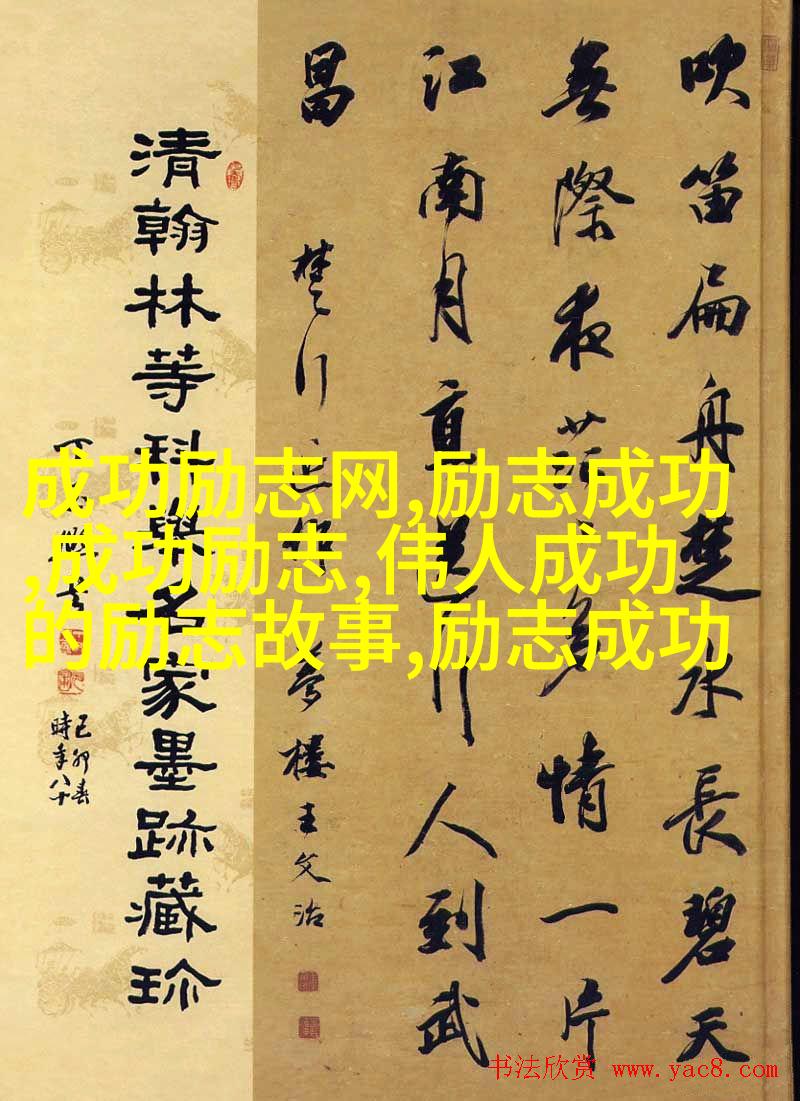 吹笛扁舟楚水長碧天
無際夜茫多情一片
江南月直送行人到武
昌
楚行 作 夢樓王文治
清翰林等科舉名家墨跡藏珍
己卯春
時年八十
成功励志网,励志成功
,成功励志,伟人成功
的励志故事,励志成功
书法欣赏 www.yac8.com